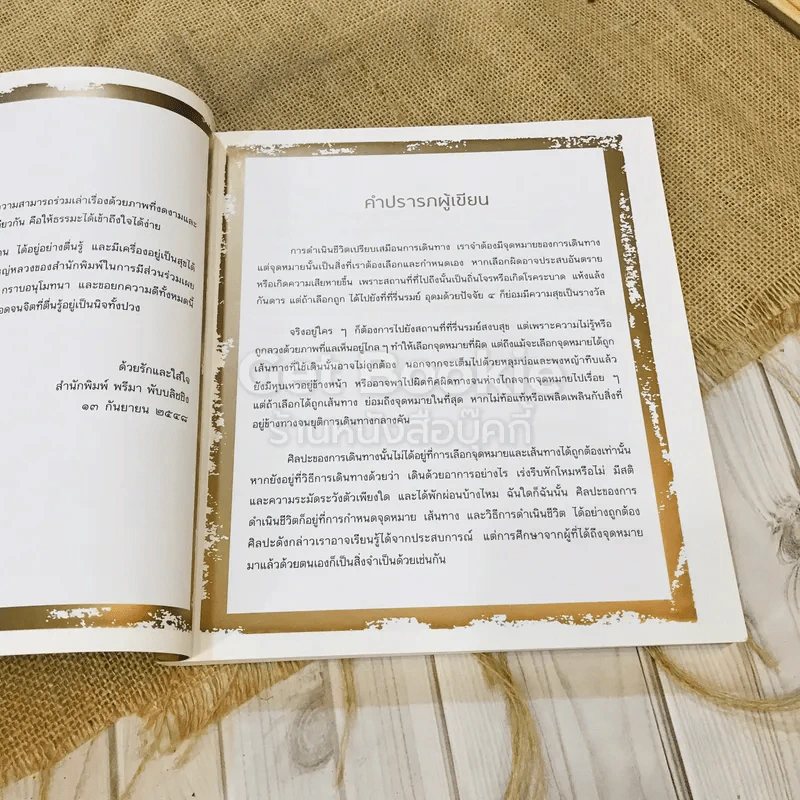 ความสามารถร่วมเล่าเรื่องด้วยภาพที่งดงามและ
เดียวกัน คือให้ธรรมะได้เข้าถึงใจได้ง่าย
ได้อยู่อย่างตื่นรู้ และมีเครื่องอยู่เป็นสุขได้
ใหญ่หลวงของสำนักพิมพ์ในการมีส่วนร่วมเผย
กราบอนุโมทนา และขอยกความดีทั้งหมดนี้
จนจิตที่ตื่นรู้อยู่เป็นนิจทั้งปวง
ด้วยรักและใส่ใจ
สำนักพิมพ์ พรีมา พับบลิชชิง
๑๓ กันยายน ๒๕๔๘
คำปรารภผู้เขียน
การดำเนินชีวิตเปรียบเสมือนการเดินทาง เราจำต้องมีจุดหมายของการเดินทาง
แต่จุดหมายนั้นเป็นสิ่งที่เราต้องเลือกและกำหนดเอง หากเลือกผิดอาจประสบอันตราย
หรือเกิดความเสียหายขึ้น เพราะสถานที่ที่ไปถึงนั้นเป็นถิ่นโจรหรือเกิดโรคระบาด แห้งแล้ง
กันดาร แต่ถ้าเลือกถูก ได้ไปยังที่ที่รื่นรมย์ อุดมด้วยปัจจัย ๔ ก็ย่อมมีความสุขเป็นรางวัล
จริงอยู่ใคร ๆ ก็ต้องการไปยังสถานที่ที่รื่นรมย์สงบสุข แต่เพราะความไม่รู้หรือ
ถูกลวงด้วยภาพที่แลเห็นอยู่ไกล ๆ ทำให้เลือกจุดหมายที่ผิด แต่ถึงแม้จะเลือกจุดหมายได้ถูก
เส้นทางที่ใช้เดินนั้นอาจไม่ถูกต้อง นอกจากจะเต็มไปด้วยหลุมบ่อและพงหญ้าทึบแล้ว
ยังมีหุบเหวอยู่ข้างหน้า หรืออาจพาไปผิดทิศผิดทางจนห่างไกลจากจุดหมายไปเรื่อย ๆ
แต่ถ้าเลือกได้ถูกเส้นทาง ย่อมถึงจุดหมายในที่สุด หากไม่ท้อแท้หรือเพลิดเพลินกับสิ่งที่
อยู่ข้างทางจนยุติการเดินทางกลางคัน
ร้านหนังสือบุ๊คกี้
ศิลปะของการเดินทางนั้นไม่ได้อยู่ที่การเลือกจุดหมายและเส้นทางได้ถูกต้องเท่านั้น
หากยังอยู่ที่วิธีการเดินทางด้วยว่า เดินด้วยอาการอย่างไร เร่งรีบหักโหมหรือไม่ มีสติ
และความระมัดระวังตัวเพียงใด และได้พักผ่อนบ้างไหม ฉันใดก็ฉันนั้น ศิลปะของการ
ดำเนินชีวิตก็อยู่ที่การกำหนดจุดหมาย เส้นทาง และวิธีการดำเนินชีวิต ได้อย่างถูกต้อง
ศิลปะดังกล่าวเราอาจเรียนรู้ได้จากประสบการณ์ แต่การศึกษาจากผู้ที่ได้ถึงจุดหมาย
มาแล้วด้วยตนเองก็เป็นสิ่งจำเป็นด้วยเช่นกัน